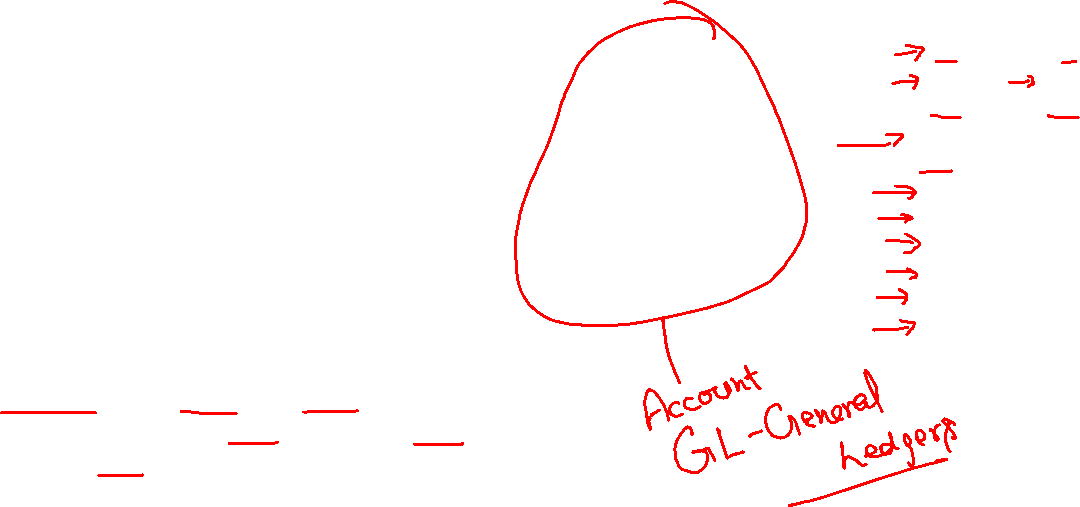 Account
GL-General
Ledgers